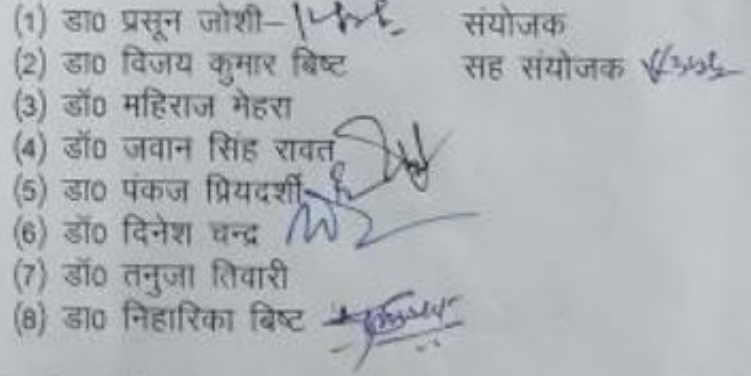 (1) डा0 प्रसून जोशी– संयोजक
(2) डा0 विजय कुमार बिष्ट सह संयोजक
(3) डॉ0 महिराज मेहरा
(4) डॉ0 जवान सिंह रावत
(5) डा0 पंकज प्रियदर्शी
(6) डॉ0 दिनेश चन्द्र
(7) डॉ0 तनुजा तिवारी
(8) डा0 निहारिका बिष्ट